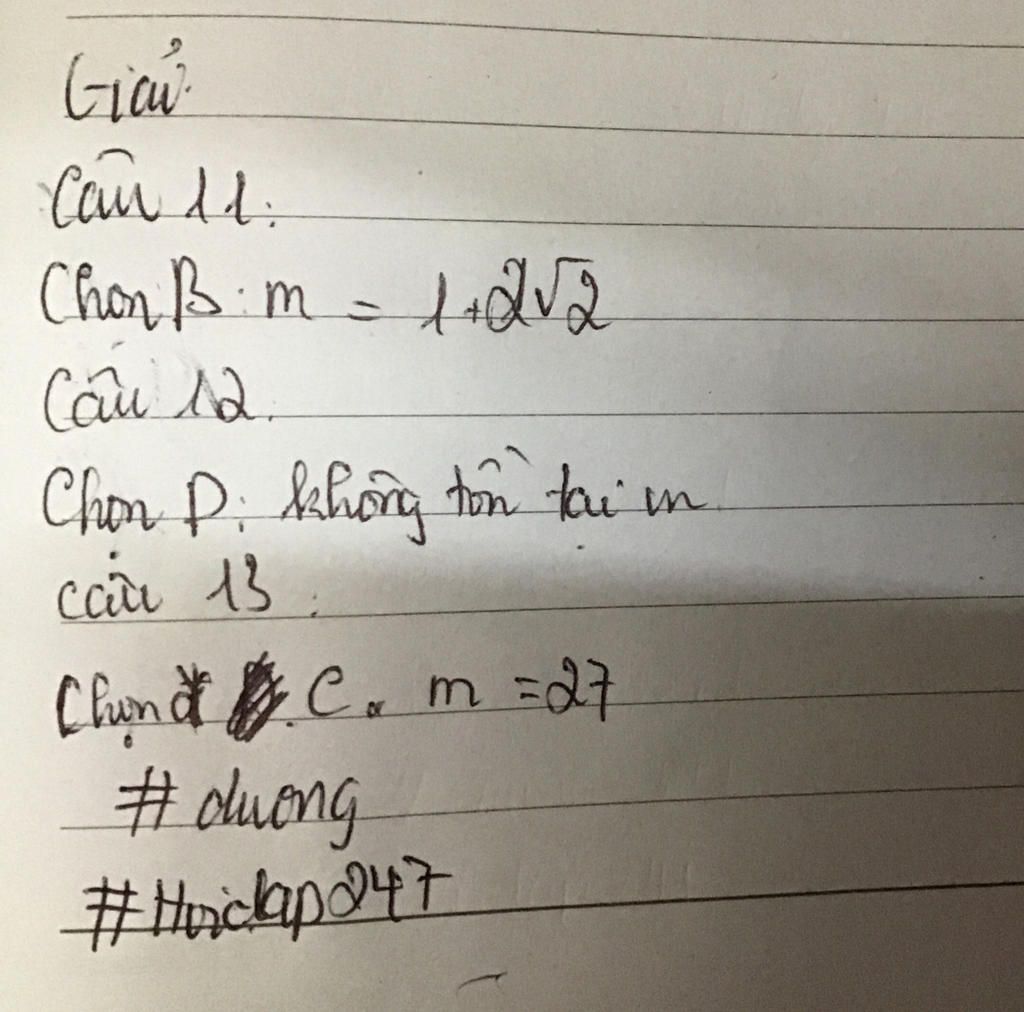 Giải
Câu 11:
Chọn B: m = 1+2√2
Câu 12.
Chọn D: không tồn tại m
câu 13:
Chọn C. m = 27
# duong
# Hoidap247